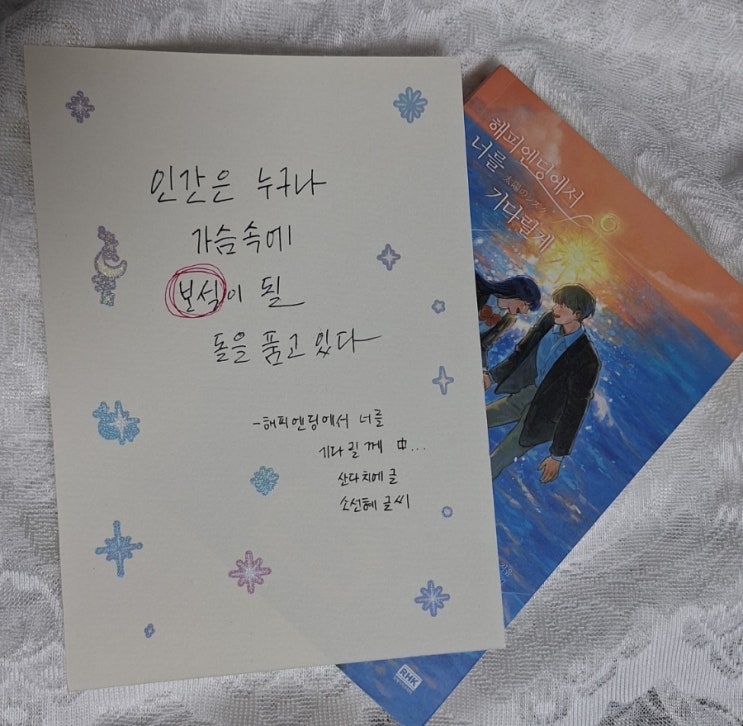 인간은 누구나
가슴속에
보석이 될
돌을 품고 있다
-해피엔딩에서 너를
기다릴께 中...
산다치에 글
소선혜 글씨
해피엔딩에서
너를
기다릴게
RHK